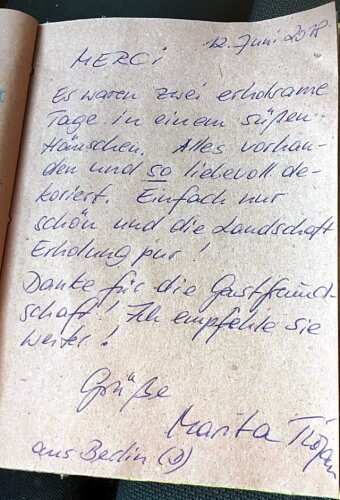 12. Juni 2018
MERCI
Es waren zwei erholsame
Tage in einem süßen
Häuschen. Alles vorhan-
den und so liebevoll de-
koriert. Einfach nur
schön und die Landschaft
Erholung pur!
Danke für die Gastfreund-
schaft! Ich empfehle sie
weiter!
Grüße
Marita
aus Berlin (D)